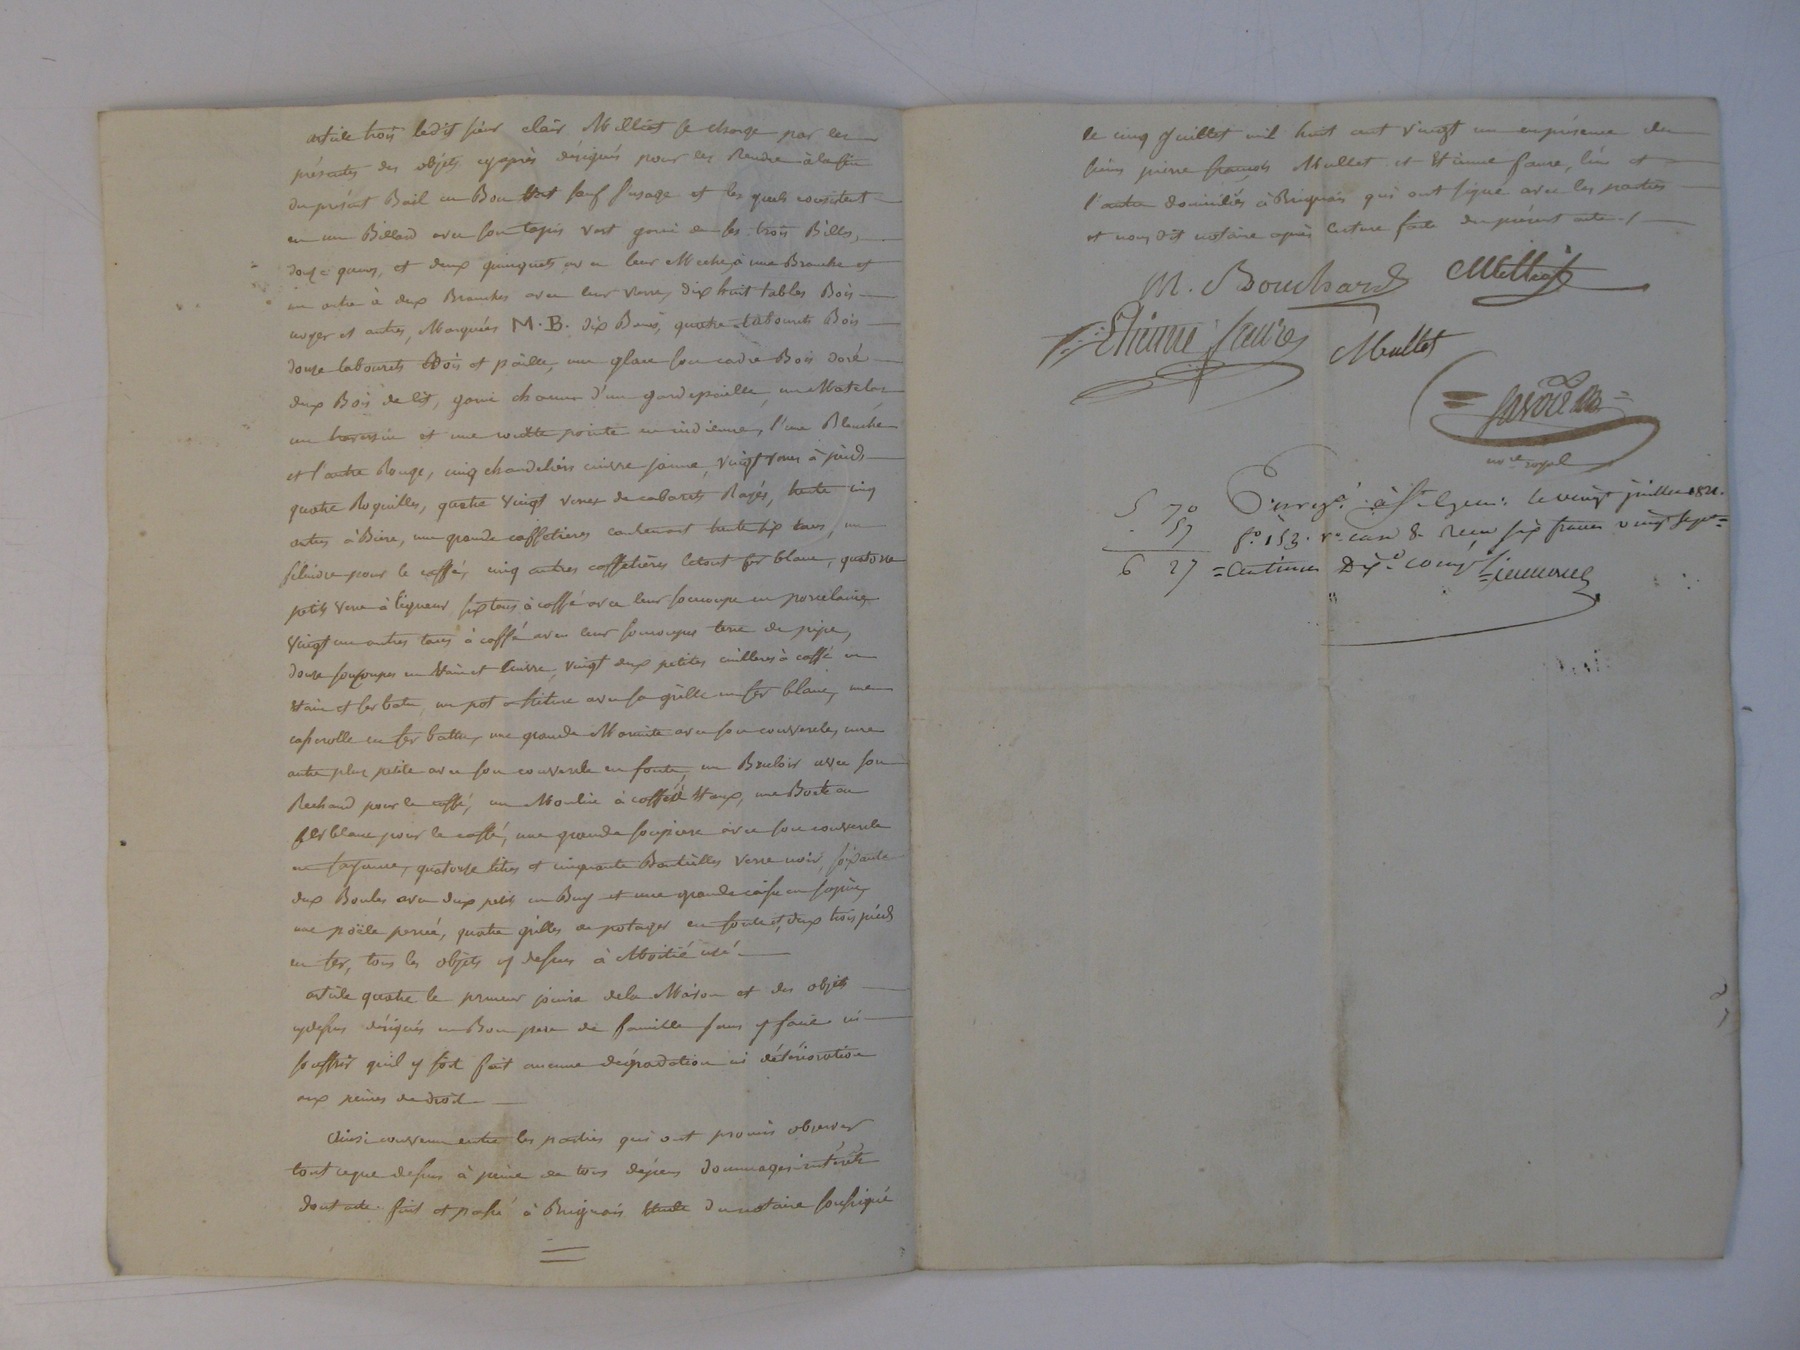 article trois ledit sieur clair Milliet se charge par les
présentes des objets cyaprès désignés pour les Rendre àlafin
duprésent Bail en Bon Etat sauf l'usage et les quels consistent
en un Billard avec son tapis vert garni de ses trois Billes,
douze queues, et deux quinquets avec leur Meche, à une Branche et
un autre à deux Branches avec leur verre, dix huit tables Bois
noyer et autres, Marquées M.B. dix Bancs, quatre tabourets Bois
douze tabourets Bois et paille, une glace son cadre Bois doré
deux Bois de lit, garni chacun d'un gardepaille, un Matelas
un traversin et une coutte pointe en indienne, l'une Blanche
et l'autre Rouge, cinq chandeliers cuivre jaune, vingt verres à pieds
quatre Roquilles, quatre vingt verres de cabarets Rayés, trente cinq
autres à Biere, une grande caffetieres contenant trente six tasses, un
filindre pour le caffé, cinq autres caffetières letout fer blanc, quatorze
petits verre à liqueur six tasses à caffé avec leur soucoupe en porcelaine
vingt une autres tasses à caffé avec leur soucoupes terre de pipe,
douze soucoupes en Etain et Cuivre, vingt deux petites cuilleres à caffé en
Etain et fer batu, un pot avec sa grille en fer blanc, une
casserolle en fer battu, une grande Marmite avec son couvercle, une
autre plus petite avec son couvercle en fonte, un Bruloir avec son
Rechaud pour le caffé, un Moulin à caffé, une Boete en
fer blanc pour le caffé, une grande soupiere avec son couvercle
en fayance, quatorze litres et cinquante Bouteilles verre noir, soixante
deux Boules avec deux petits en Buy et une grande caisse en sapin,
une pöele percée, quatre grilles de potager en fonte et deux trois pieds
en fer, tous les objets cy dessus à Moitié usé.
article quatre le preneur jouira dela Maison et des objets
cydessus désignés en Bon pere de famille sans y faire ni
souffrir quil y soit fait aucune dégradation ni détérioration
aux peines de droit
Ainsi convenu entre les parties qui ont promis observer
tout ceque dessus à peine de tous dépens dommages intérêts
dont acte fait et passé à Brignais Etude du notaire soussigné
le cinq Juillet mil huit cent vingt un en présence des
sieurs pierre françois Mullet et Etienne faure, l'un et
l'autre domiciliés à Brignais qui ont signé avec les parties
et nous dit notaire après lecture faite du présent acte./.
M. Bouchard Milliet
Etienne faure Mullet
nore royal
5 70
. 57
6 27
Enregé. à St. le vingt juillet 1821.
fo. 153. vo. case 8 Reçu six francs vingt sept
centimes Dixe. compris